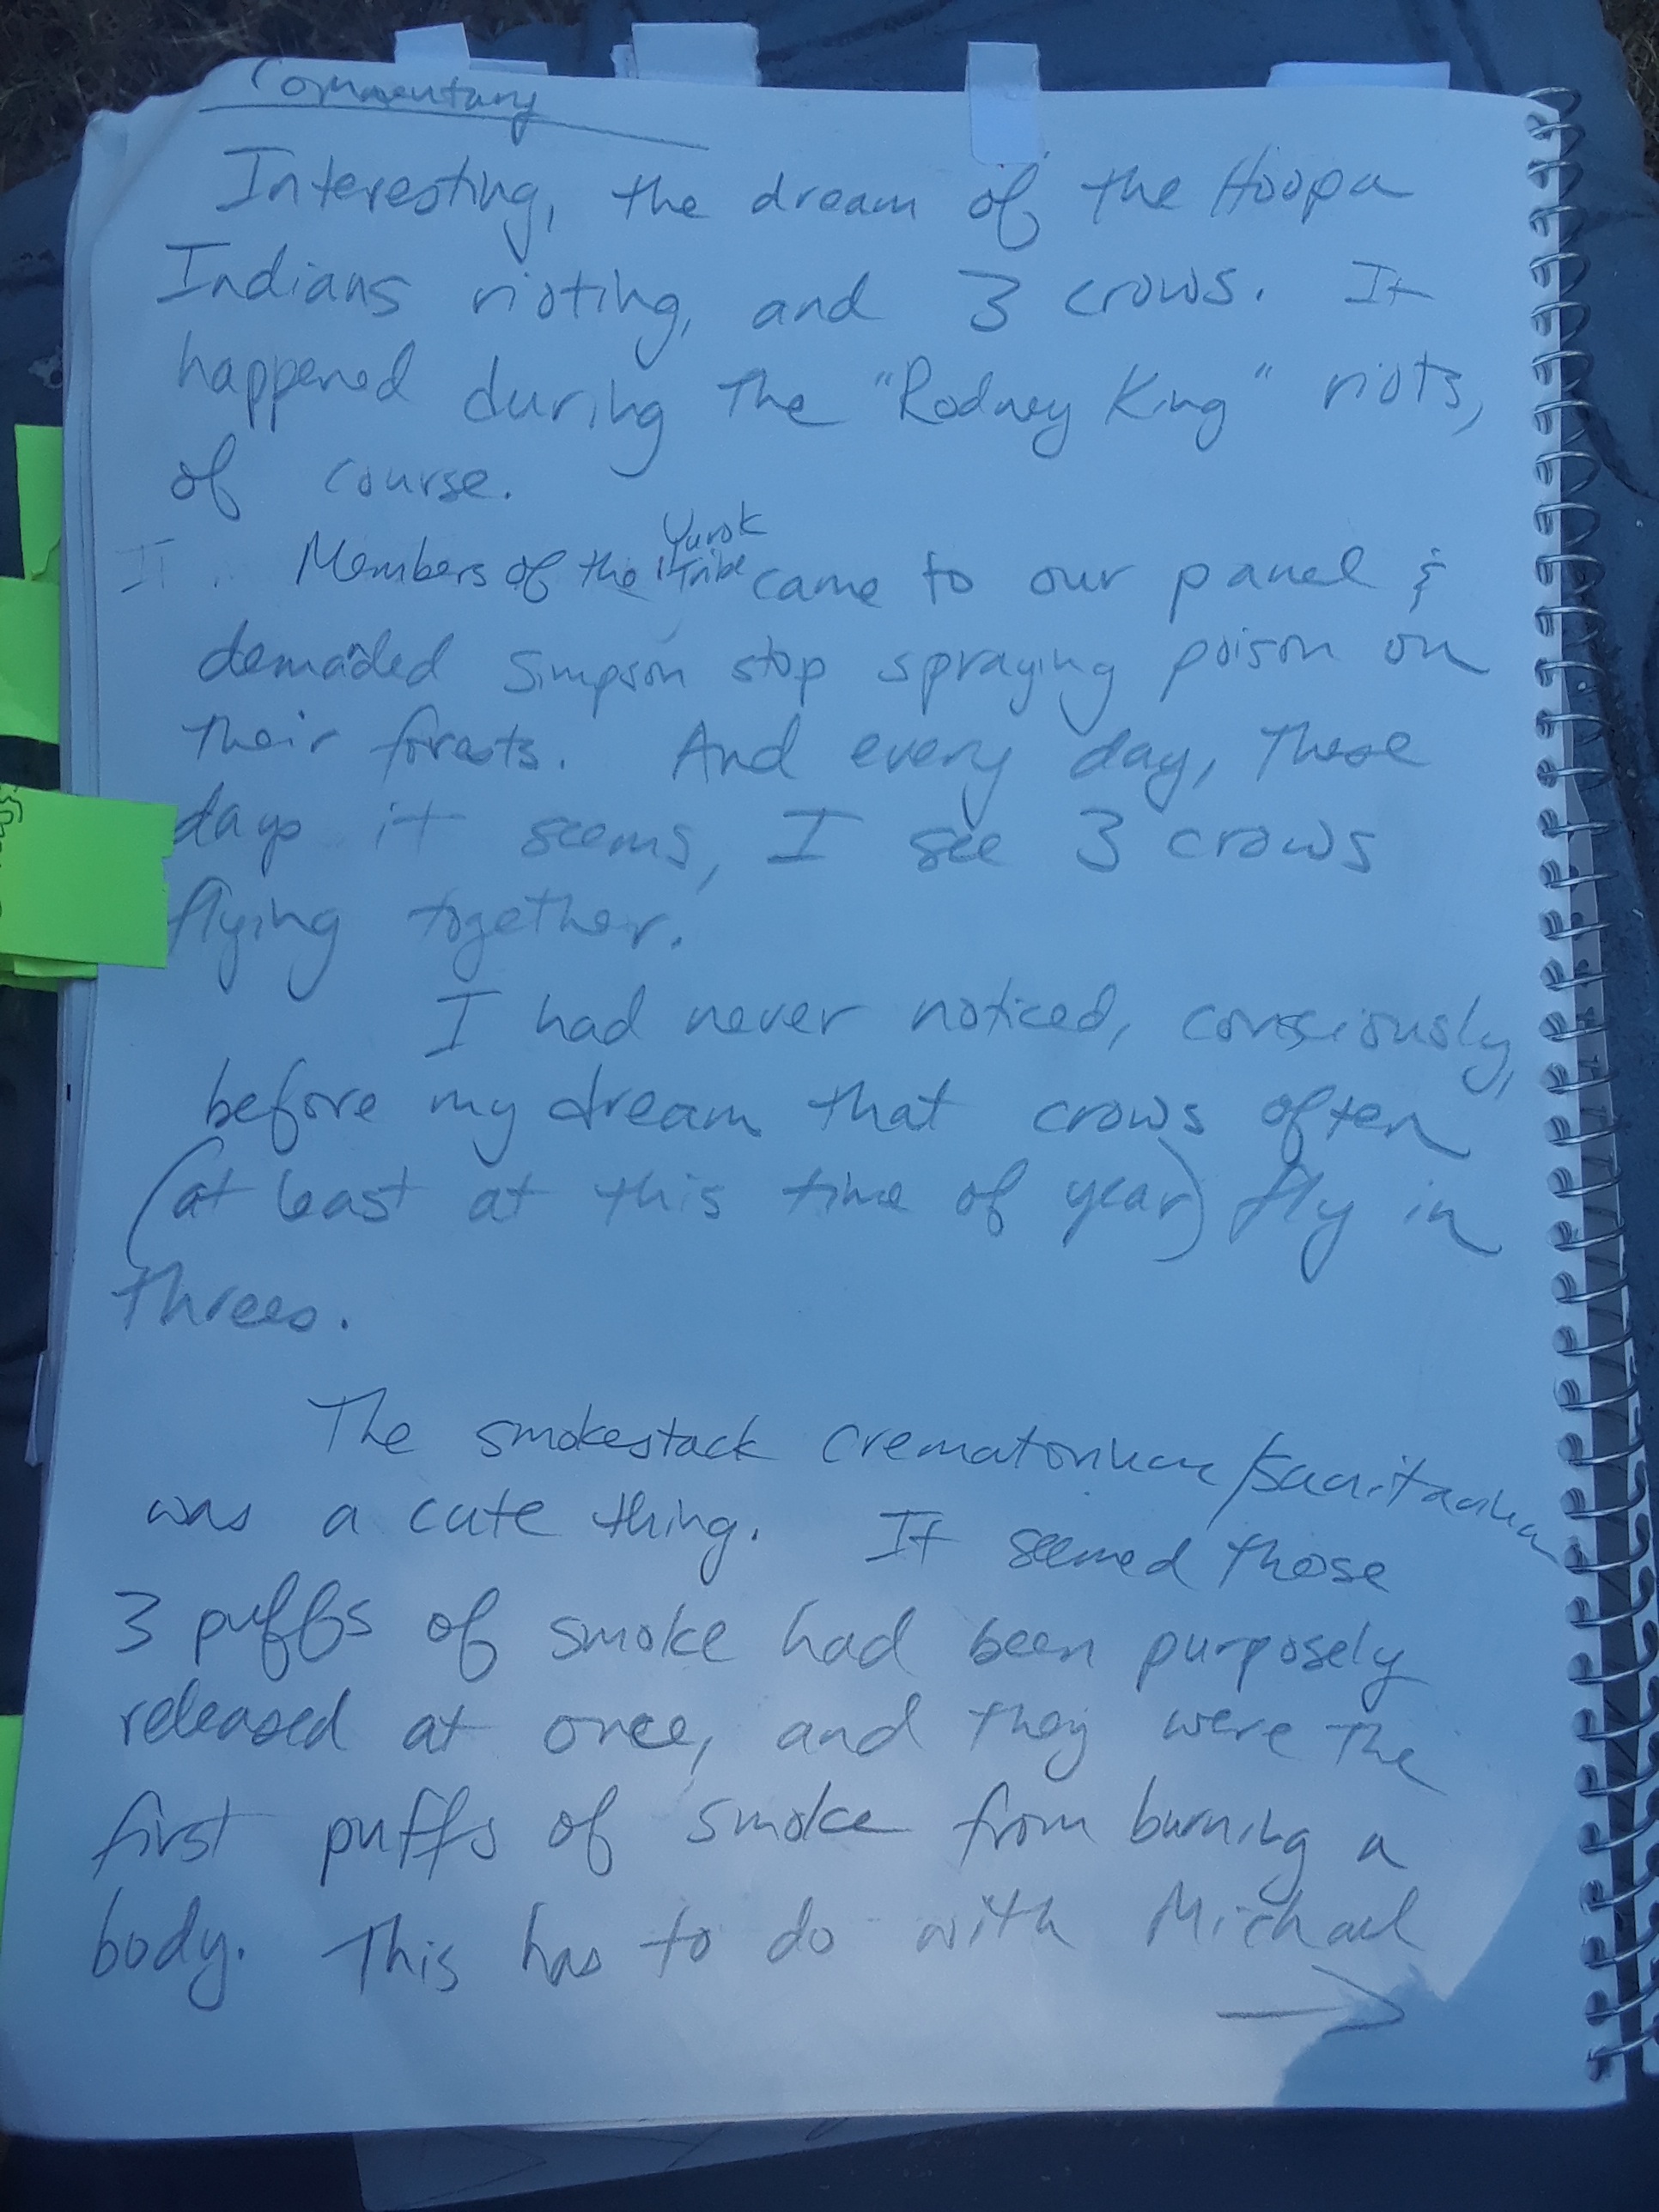 Commentary
Interesting, the dream of the Hoopa
Indians rioting, and 3 crows. It
happened during the "Rodney King" riots,
of course.
II. Members of the Yurok Tribe came to our panel &
demanded Simpson stop spraying poison on
their forests. And every day, these
days it seems, I see 3 crows
flying together.
I had never noticed, consciously,
before my dream that crows often
(at least at this time of year) fly in
threes.
The smokestack crematorium/sanitarium
was a cute thing. It seemed those
3 puffs of smoke had been purposely
released at once, and they were the
first puffs of smoke from burning a
body. This has to do with Michael
→